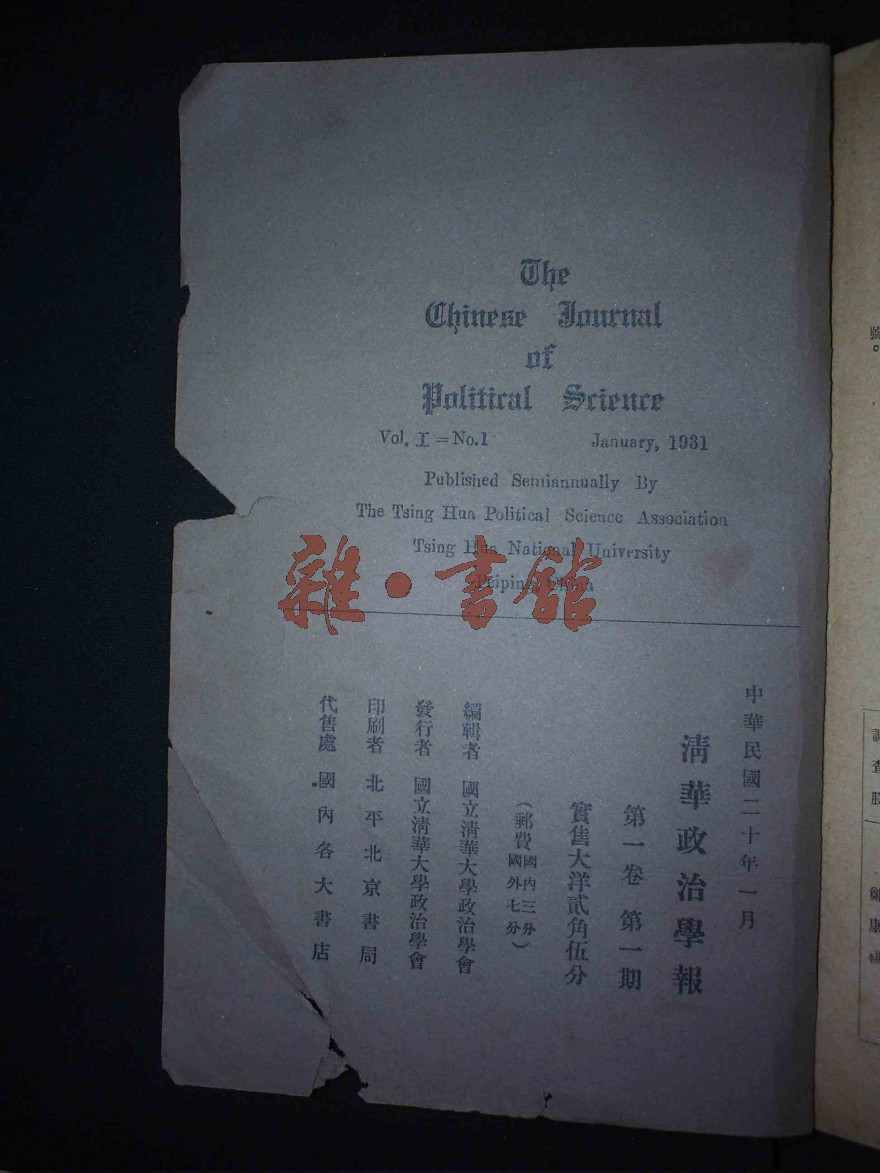 The
Chinese Journal
of
Political Science
Vol. I = No.1 January, 1931
Published Semiannually By
The Tsing Hua Political Science Association
Tsing Hua National University
Peiping, China
雜·書館
中華民國二十年一月
清華政治學報
第一卷 第一期
實售大洋貳角伍分
(郵費國內三分
國外七分)
編輯者 國立清華大學政治學會
發行者 國立清華大學政治學會
印刷者 北平北京書局
代售處 國內各大書店
號。
調查股